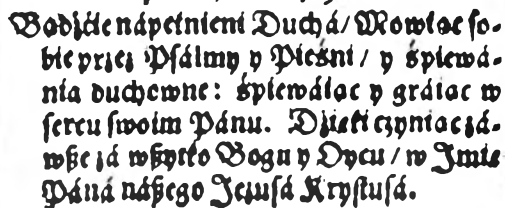 Bądźćie nápełnieni Duchá / Mowiąc so-
bie przez Psálmy y Pieśni / y śpiewá-
nia duchowne: śpiewáiąc y gráiąc w
sercu swoim Pánu. Dzięki czyniąc zá-
wsze zá wszytko Bogu y Oycu / w Imię
Páná nászego Jezusá Krystusá.